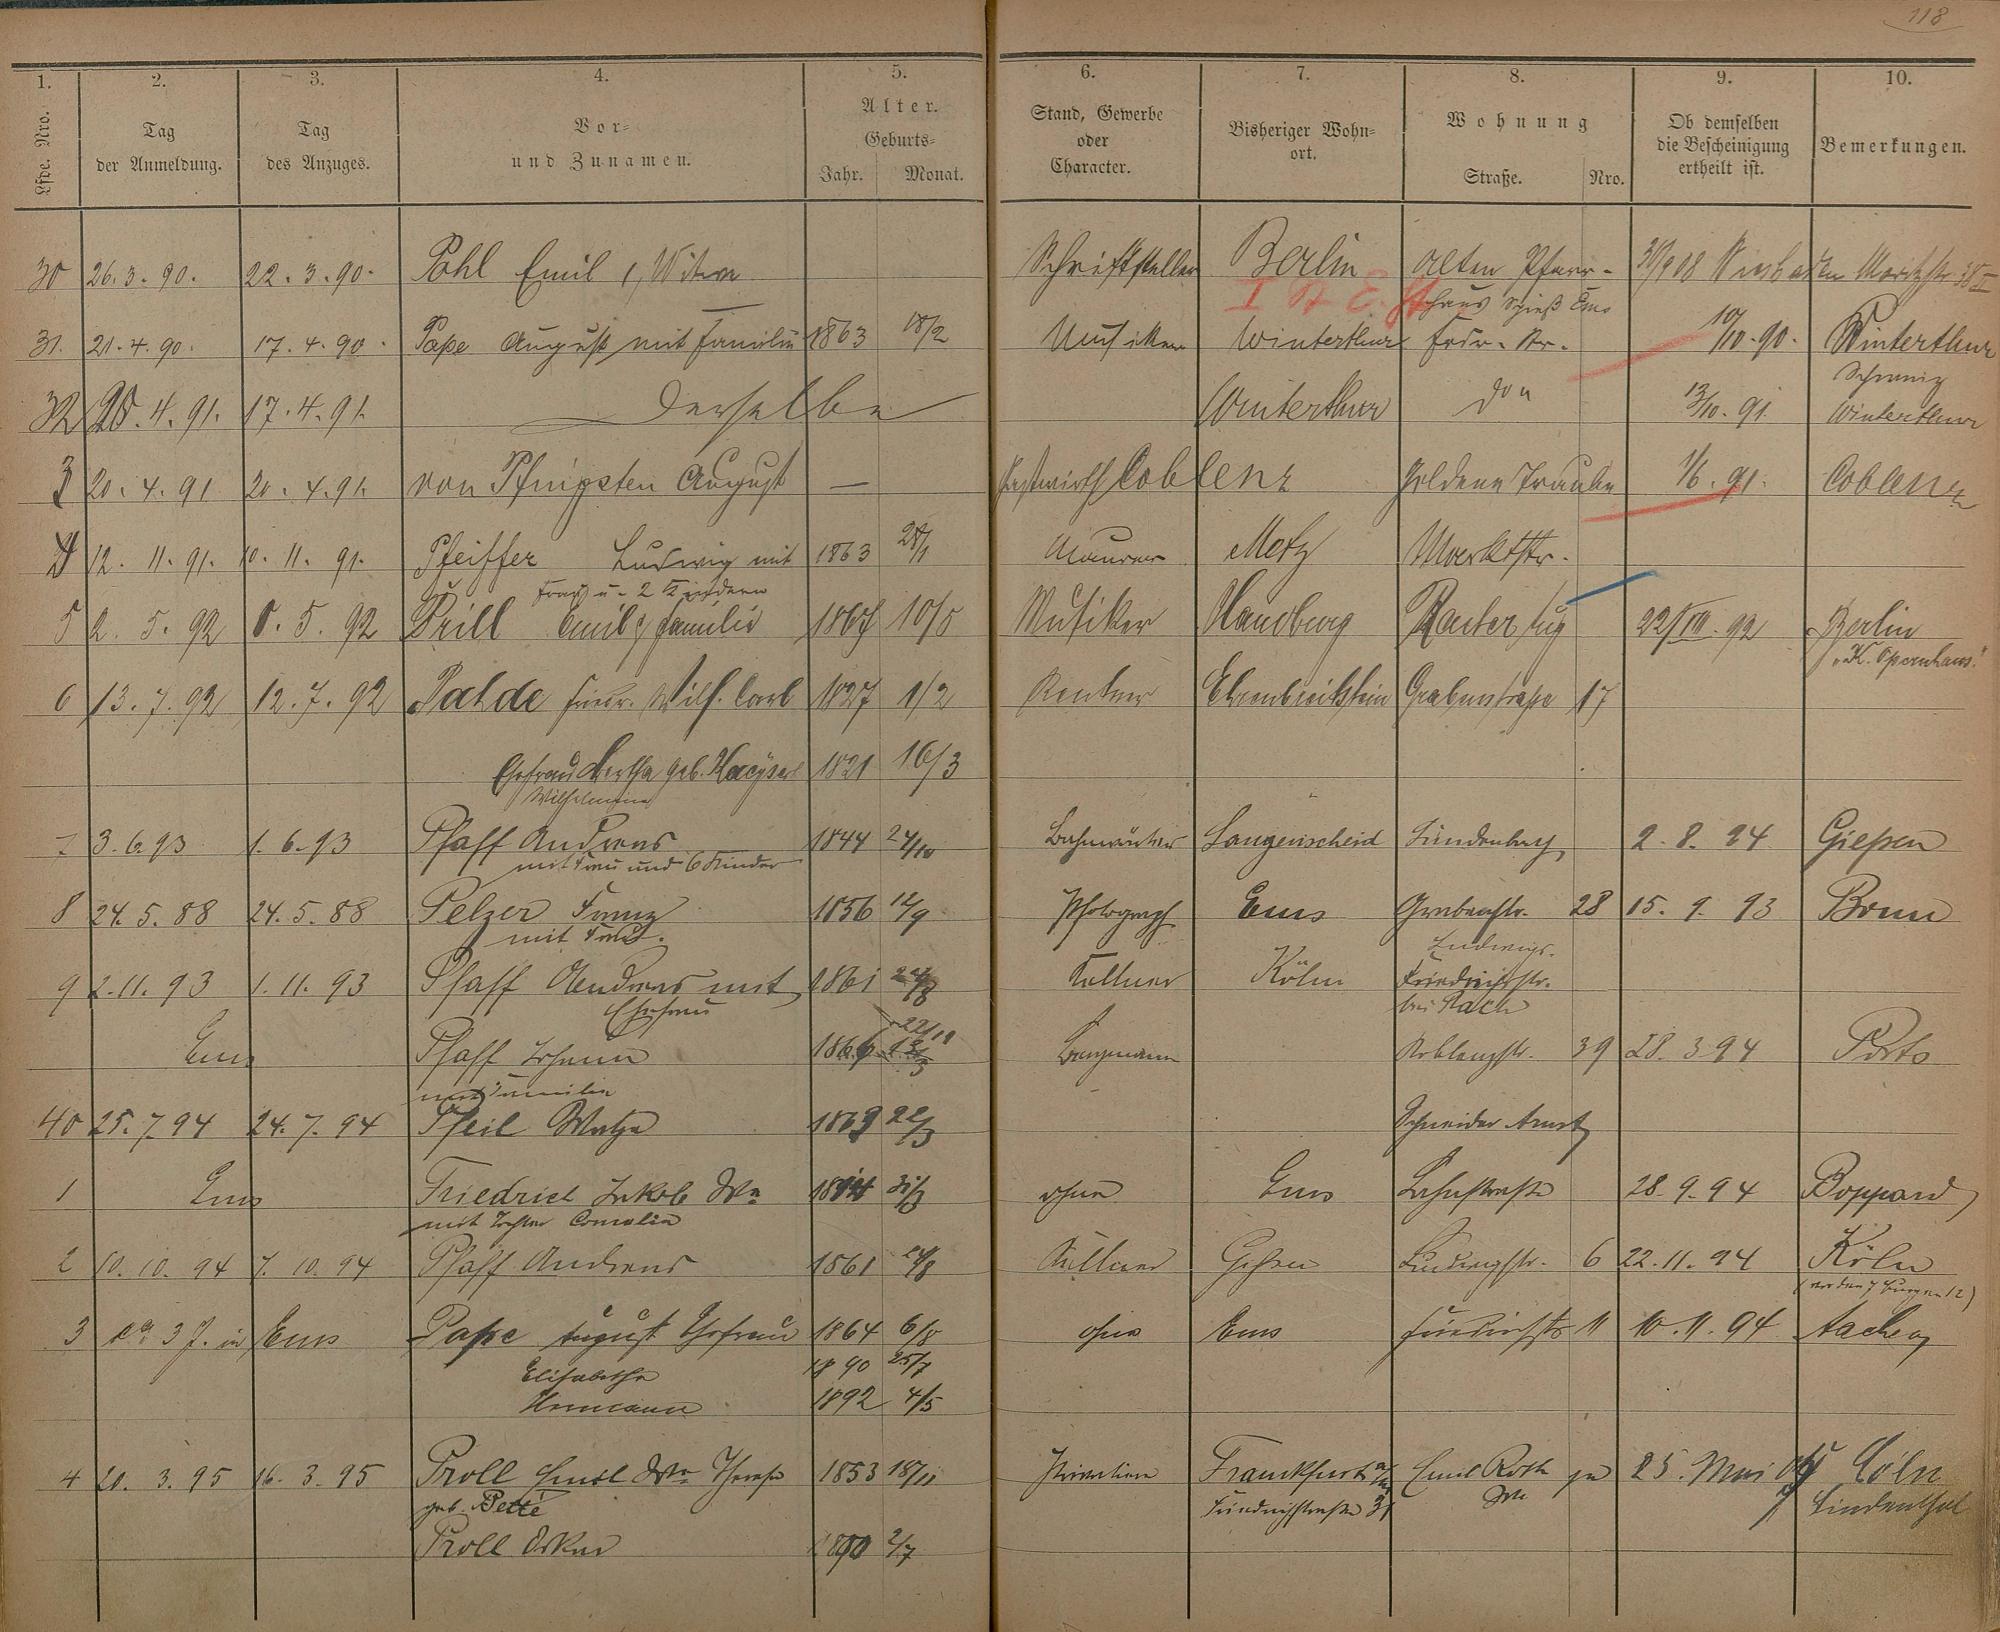 118
1. 2. 3. 4. 5. 6. 7. 8. 9. 10.
Lfde. Nro. Tag der Anmeldung. Tag des Anzuges. Vor- und Zunamen. Alter. Geburts- Jahr. Monat. Stand, Gewerbe oder Character. Bisheriger Wohnort. Wohnung Straße. Nro. Ob demselben die Bescheinigung ertheilt ist. Bemerkungen.
30 26.3.90. 22.3.90. Pohl Emil Schriftsteller Berlin alten Pfarr- Wiesbaden Moritzstr. 38 II
haus Spieß Ems
31. 21.4.90. 17.4.90. Pape August mit Familie 1863 18/2 Musiker Winterthur Frdr.-Str. 10/10.90. Winterthur
Schweiz
32 20.4.91. 17.4.91. Derselbe Winterthur 13/10.91. Winterthur
3 20.4.91 20.4.91. von Pfingsten August — Gastwirth Coblenz Goldene Traube 1/6.91. Coblenz
4 12.11.91. 10.11.91. Pfeiffer Ludwig mit 1863 28/1 Maurer Metz Marktstr.
Frau u. 2 Kindern
5 2.5.92 1.5.92 Prill Emil & Familie 1867 10/5 Musiker Hamburg 22/VIII.92 Berlin
"K. Opernhaus."
6 13.7.92 12.7.92 Wilh. Carl 1827 1/2 Rentner Ehrenbreitstein Grabenstraße 17
Ehefrau Bertha geb. Kayser 1821 16/3
Wilhelmine
7 3.6.93 1.6.93 Pfaff Andreas 1844 24/10 Bahnwärter Langenscheid Lindenbach 2.8.94 Gießen
mit Frau und 6 Kinder
8 24.5.88 24.5.88 Pelzer Franz 1856 12/9 Photograph Ems Grabenstr. 28 15.9.93 Bonn
mit Frau.
Ludwigs-
9 2.11.93 1.11.93 Pfaff Andreas mit 1861 24/8 Kellner Köln Friedrichstr.
Ehefrau
bei Bach
22/10
Ems Pfaff Johann 1866 Bergmann Koblenzstr. 39 28.3.94
mit Familie
40 25.7.94 24.7.94 Pfeil 1869 22/3 Schneider Arnst
1 Ems Friedrich Jakob Ww 1814 31/3 ohne Ems Lahnstraße 28.9.94 Boppard
mit Tochter
2 10.10.94 7.10.94 Pfaff Andreas 1861 24/8 Kellner Gießen Ludwigstr. 6 22.11.94 Köln
3 ca 3 J. in Ems Pape August Ehefrau 1864 6/8 ohne Ems Friedrichstr 11 10.11.94 Aachen
Elisabetha 1890 25/7
Hermann 1892 4/5
4 20.3.95 16.3.95 Proll Emil Ww Therese 1853 18/11 Privatiere Frankfurt a/M Emil Roth 25. Mai Cöln
geb. Petté
Friedrichstraße 31
Ww
Lindenthal
Proll Oskar 1890 2/7